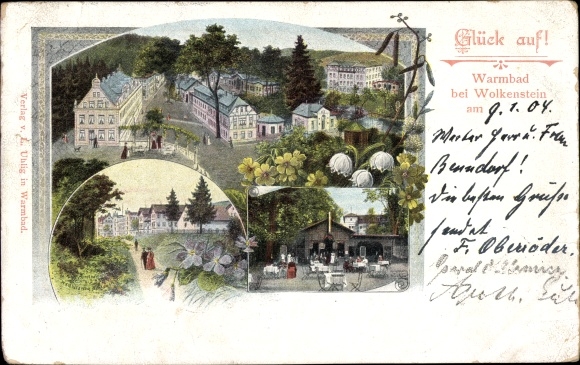 Glück auf!
Warmbad
bei Wolkenstein
am 9. 1. 04.
Werter Herr u. Frau
Benndorf!
Die besten Grüße
sendet
F. Oberröder.
Apoth.
Verlag v. Uhlig in Warmbad.